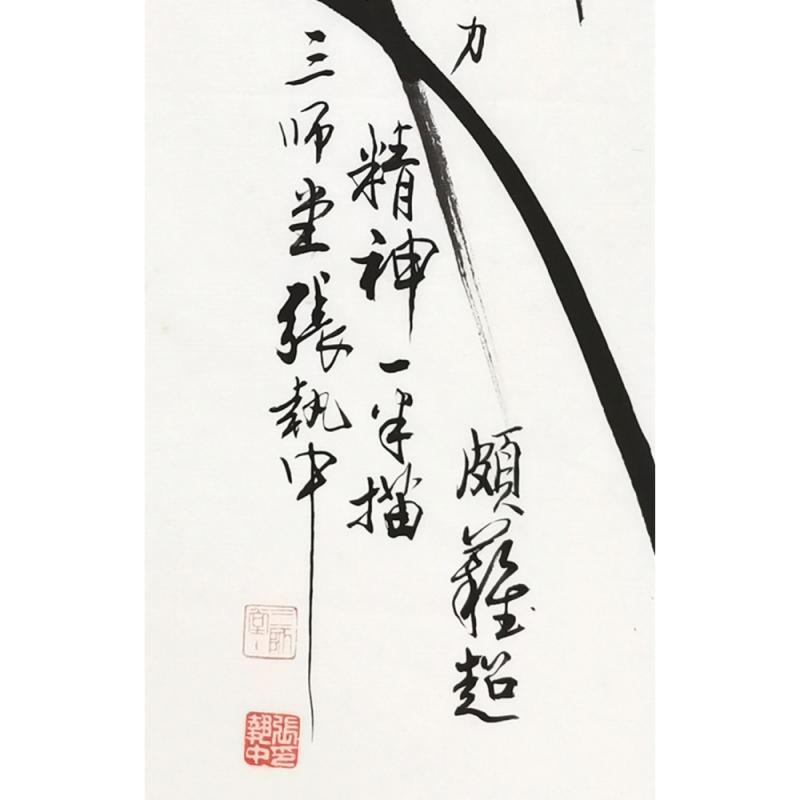 力
頗難超
精神一半描
三師堂張執中
三師堂
張執中印